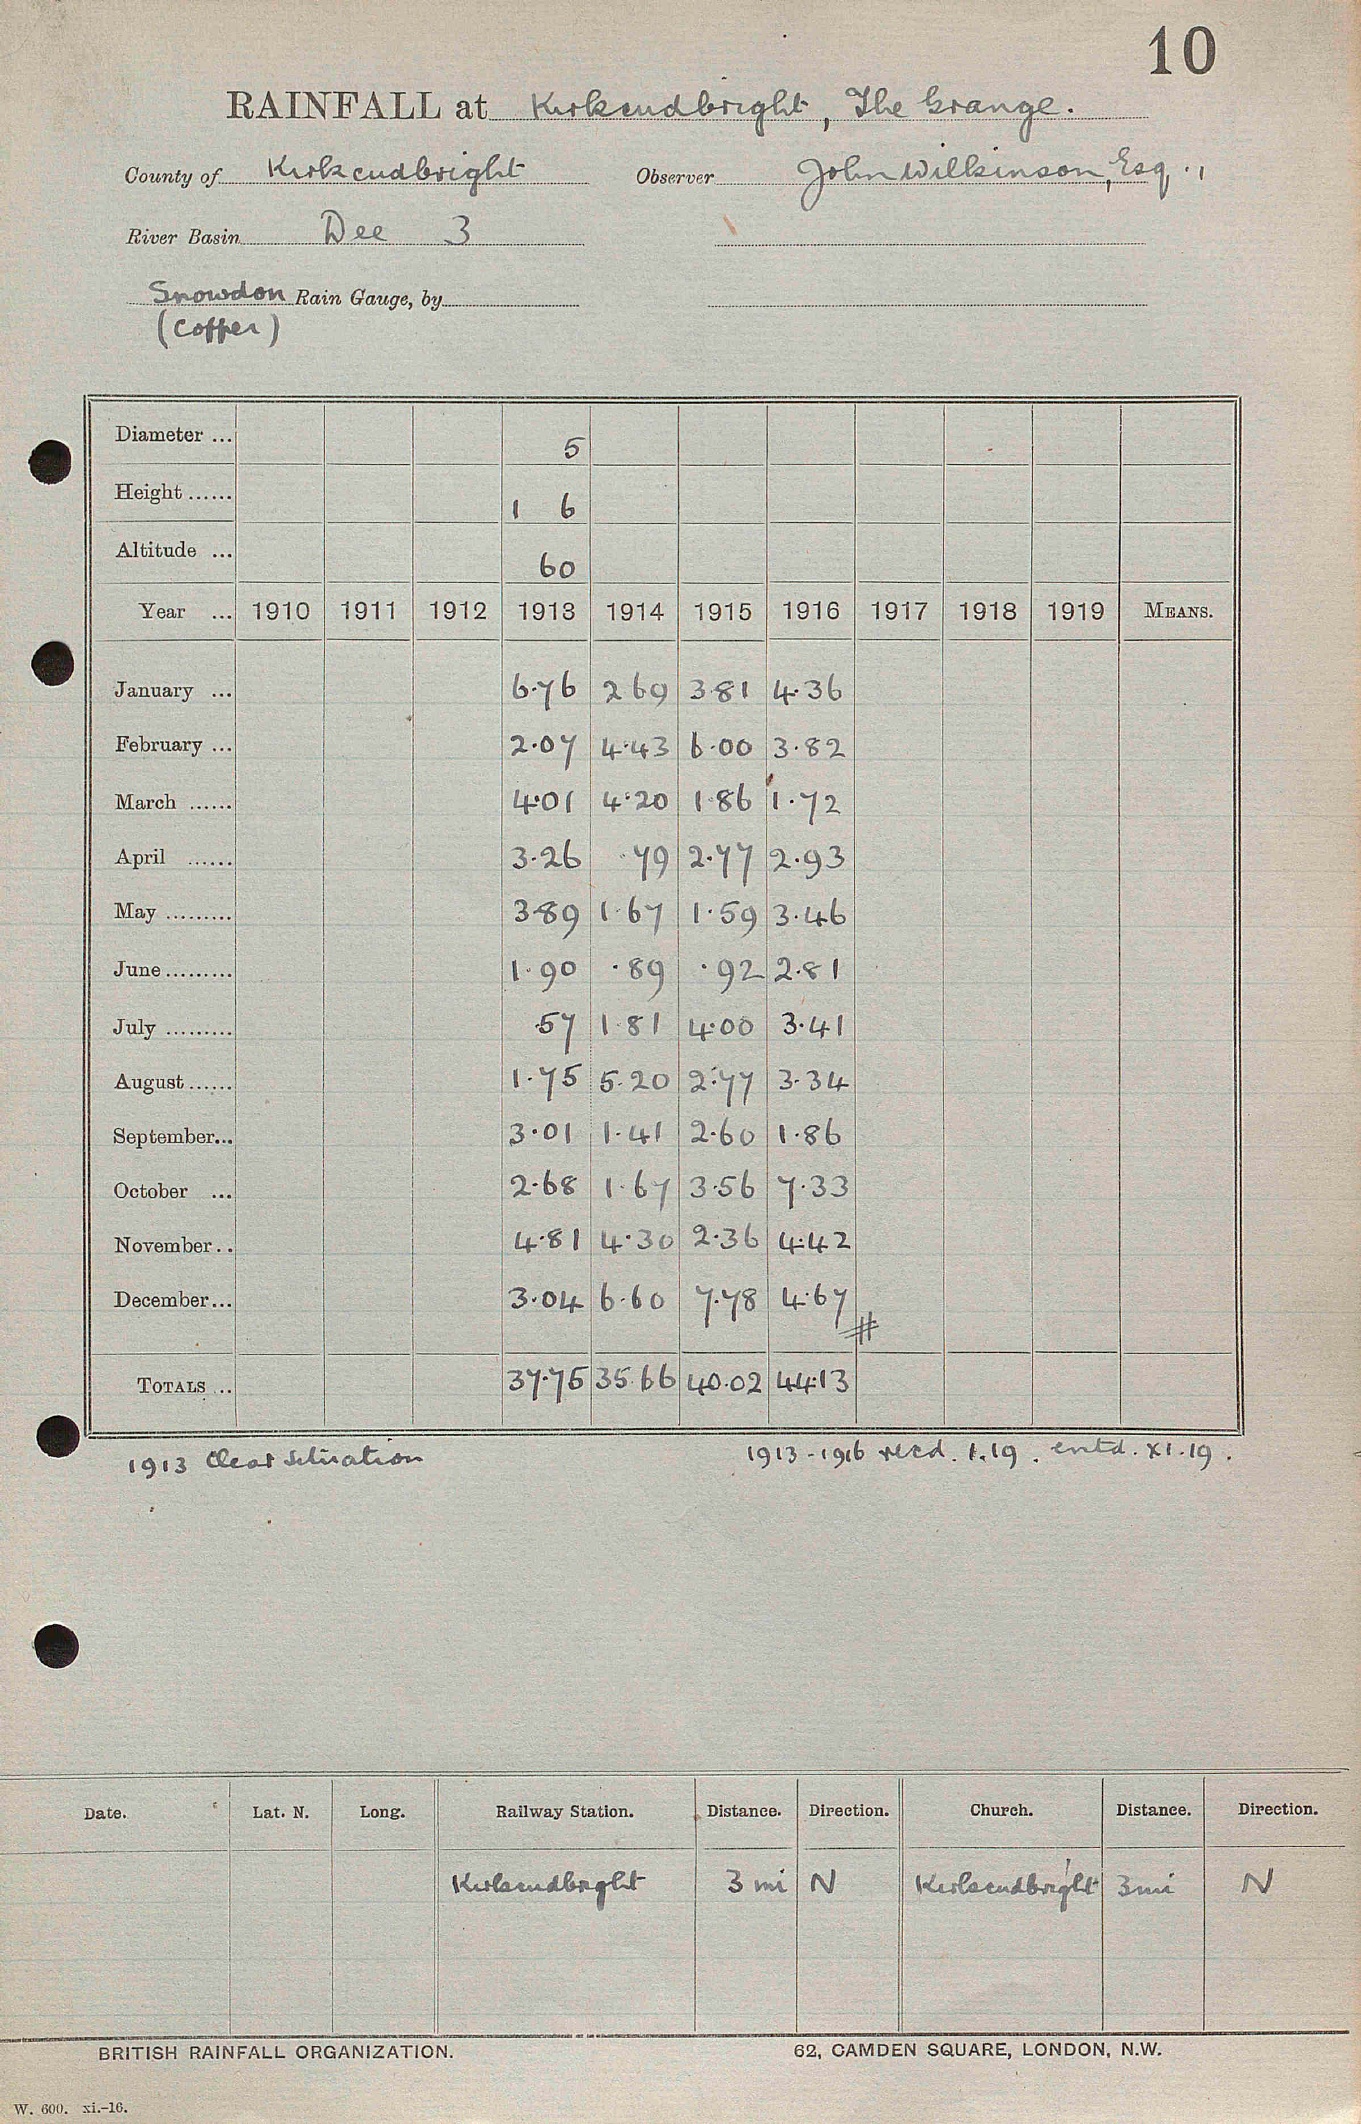 10
RAINFALL at Kirkcudbright, The Grange.
County of Kirkcudbright Observer John Wilkinson, Esq.,
River Basin Dee 3
Snowdon Rain Gauge, by
(Copper)
Diameter ... 5
Height ...... 1 6
Altitude ... 60
Year ... 1910 1911 1912 1913 1914 1915 1916 1917 1918 1919 MEANS.
January ... 6.76 2 69 3.81 4.36
February ... 2.07 4.43 6.00 3.82
March ...... 4.01 4.20 1.86 1.72
April ...... 3.26 .79 2.77 2.93
May ......... 3.89 1.67 1.59 3.46
June ......... 1.90 .89 .92 2.81
July ......... .57 1.81 4.00 3.41
August ...... 1.75 5.20 2.77 3.34
September... 3.01 1.41 2.60 1.86
October ... 2.68 1.67 3.56 7.33
November.. 4.81 4.30 2.36 4.42
December... 3.04 6.60 7.78 4.67
TOTALS ... 37.75 35.66 40.02 44.13
1913 Clear situation 1913-1916 recd. 1.19. entd. XI.19.
Date. Lat. N. Long. Railway Station. Distance. Direction. Church. Distance. Direction.
Kirkcudbright 3 mi N Kirkcudbright 3 mi N
BRITISH RAINFALL ORGANIZATION. 62, CAMDEN SQUARE, LONDON, N.W.
W. 600. xi.-16.